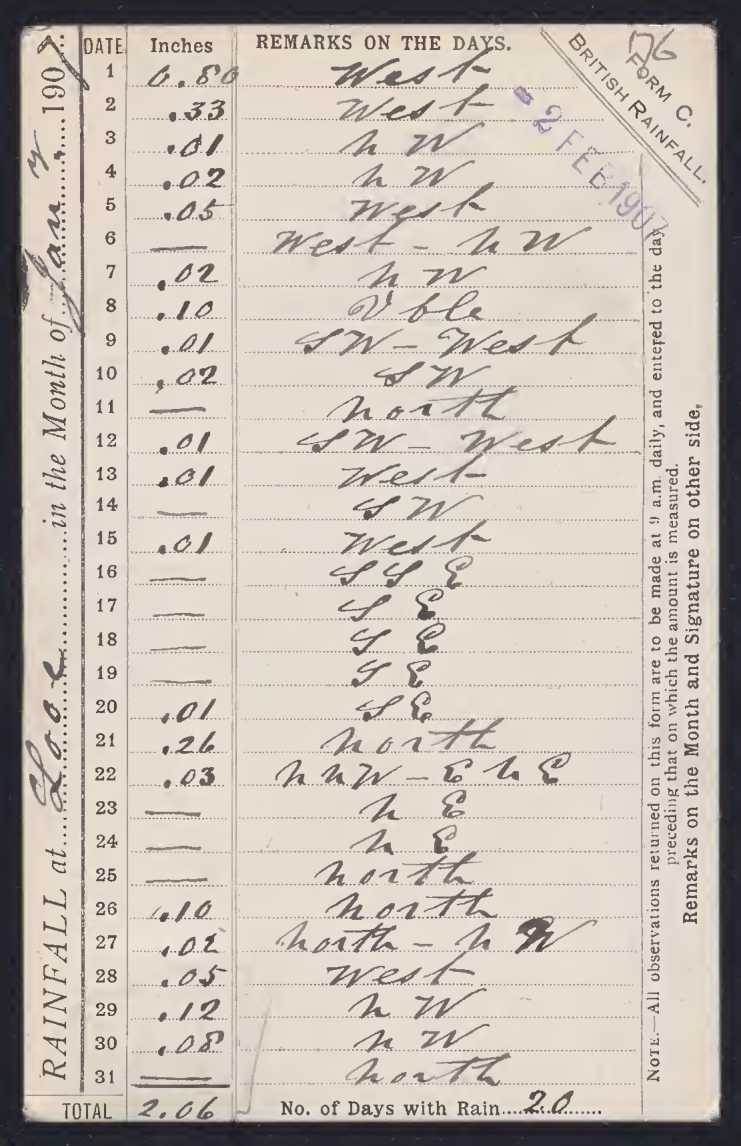 176
FORM C.
BRITISH RAINFALL.
- 2 FEB 1907
RAINFALL at Looe in the Month of Jany 1907
DATE Inches REMARKS ON THE DAYS.
1 0.80 West
2 .33 West
3 .01 N W
4 .02 N W
5 .05 West
6 — West - N W
7 .02 N W
8 .10 Vble
9 .01 SW - West
10 .02 SW
11 — North
12 .01 SW - West
13 .01 West
14 — SW
15 .01 West
16 — S S E
17 — S E
18 — S E
19 — S E
20 .01 S E
21 .26 North
22 .03 N N W - E N E
23 — N E
24 — N E
25 — North
26 .10 North
27 .02 North - N W
28 .05 West
29 .12 N W
30 .08 N W
31 — North
TOTAL 2.06 No. of Days with Rain 20
NOTE.—All observations returned on this form are to be made at 9 a.m. daily, and entered to the day
preceding that on which the amount is measured.
Remarks on the Month and Signature on other side.